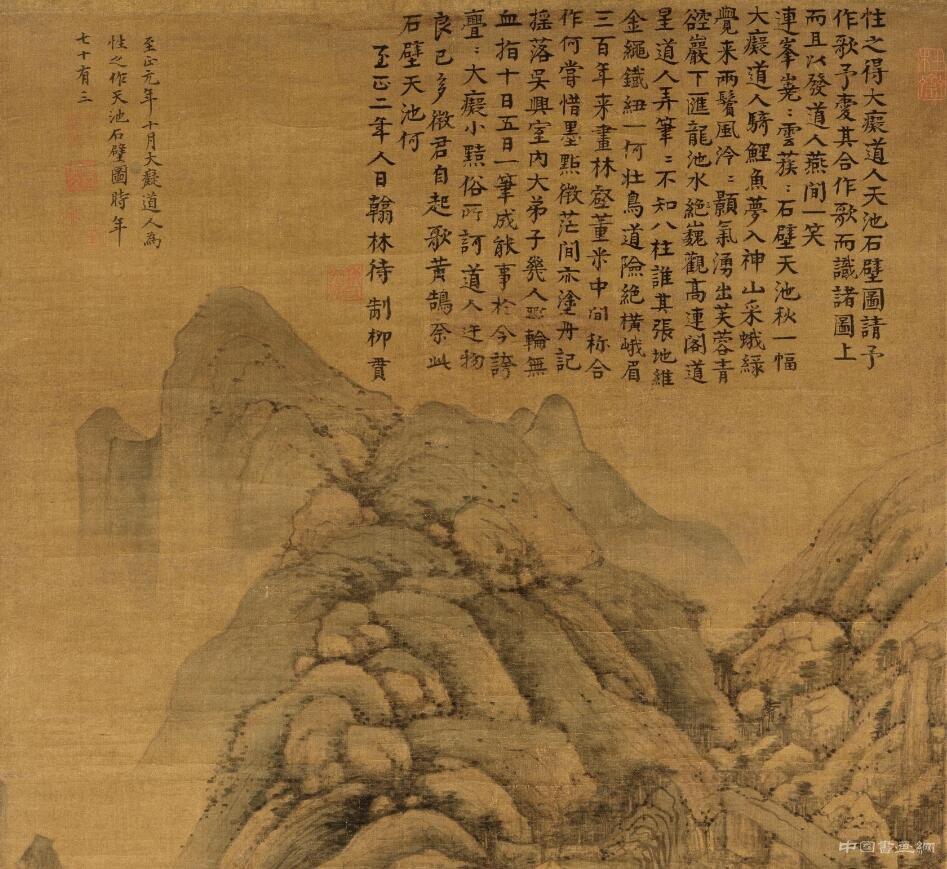 性之得大癡道人天池石壁圖請予
作歌予愛其合作歌而識諸圖上
而且以發道人燕間一笑
連峯嶤〻雲蔟〻石壁天池秋一幅
大癡道人騎鯉魚夢入神山采蛾緑
覺来兩鬢風泠〻顥氣湧出芙蓉青
硿巖下匯龍池水絶巍觀高連閣道
星道人弄筆〻不知八柱誰其張地維
金繩鐵紐一何壯鳥道險絶橫峨眉
三百年来畫林壑董米中間称合
作何嘗惜墨點微茫間亦塗丹記
揺落吳興室内大弟子幾人斵輪無
血指十日五日一筆成能事於今誇
亹〻大癡小黠俗所訶道人迕物
良已多微君自起歌黄鵠奈此
石壁天池何
至正二年人日翰林待制柳貫
至正元年十月大癡道人為
性之作天池石壁圖時年
七十有三
中国書画網